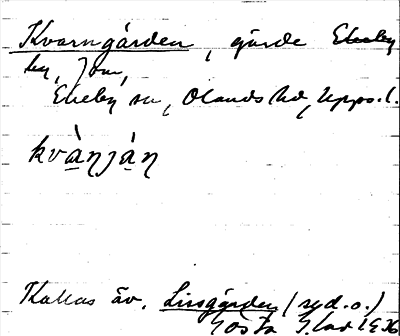 Kvarngärden, gärde Ekeby
by, Jom,
Ekeby sn, Olands hd, Upps. l.
kvànjàn
Kallas äv. Lissgärden (syd.o.)
Gösta 1936